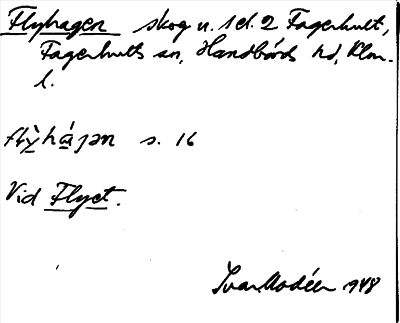 Flyhagen skog n. 1 el. 2 Fagerhult,
Fagerhults sn, Handbörds hd, Klm.
l.
flỳhá̱ɡən s. 16
Vid Flyet.
Ivar Modéer 1948